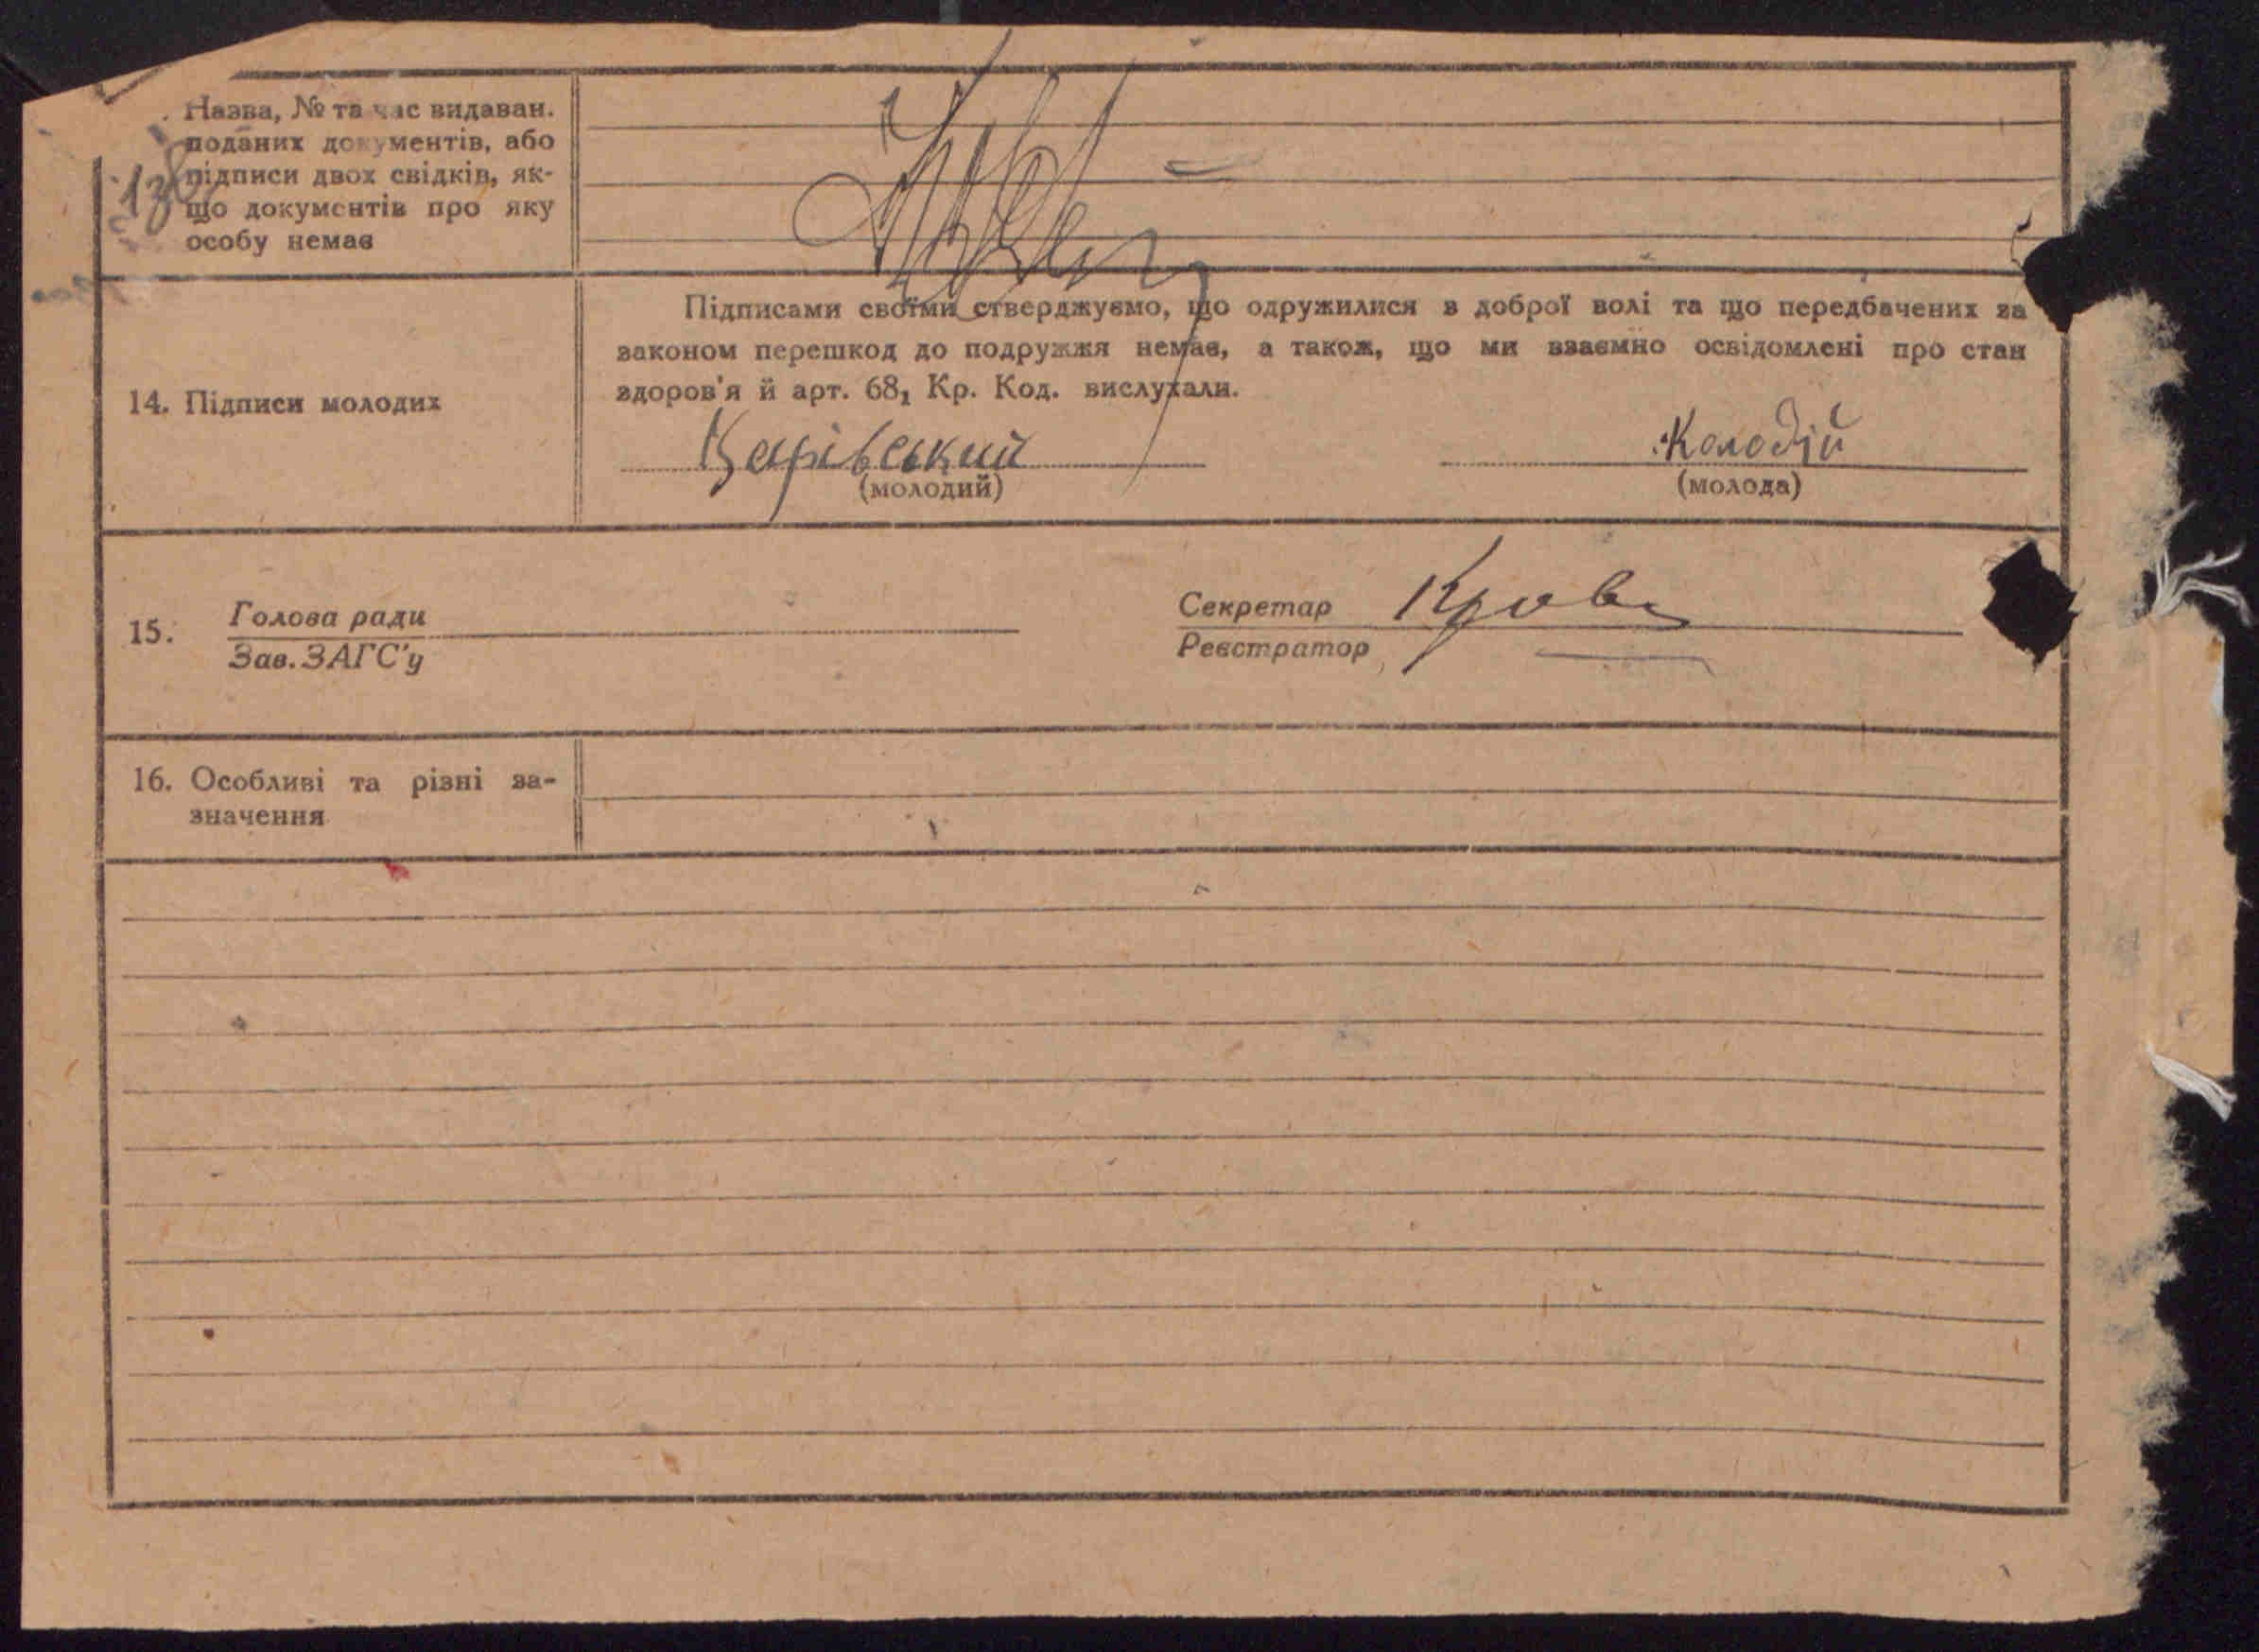 Назва, № та час видаван.
поданих документів, або
підписи двох свідків, як-
що документів про яку
особу немає
Підписами своїми стверджуємо, що одружилися з доброї волі та що передбачених за
законом перешкод до подружжя немає, а також, що ми взаємно освідомлені про стан
здоров'я й арт. 68₁ Кр. Код. вислухали.
14. Підписи молодих
Колодій
(молодий) (молода)
15. Голова ради
Зав. ЗАГС'у
Секретар
Реєстратор
16. Особливі та різні за-
значення